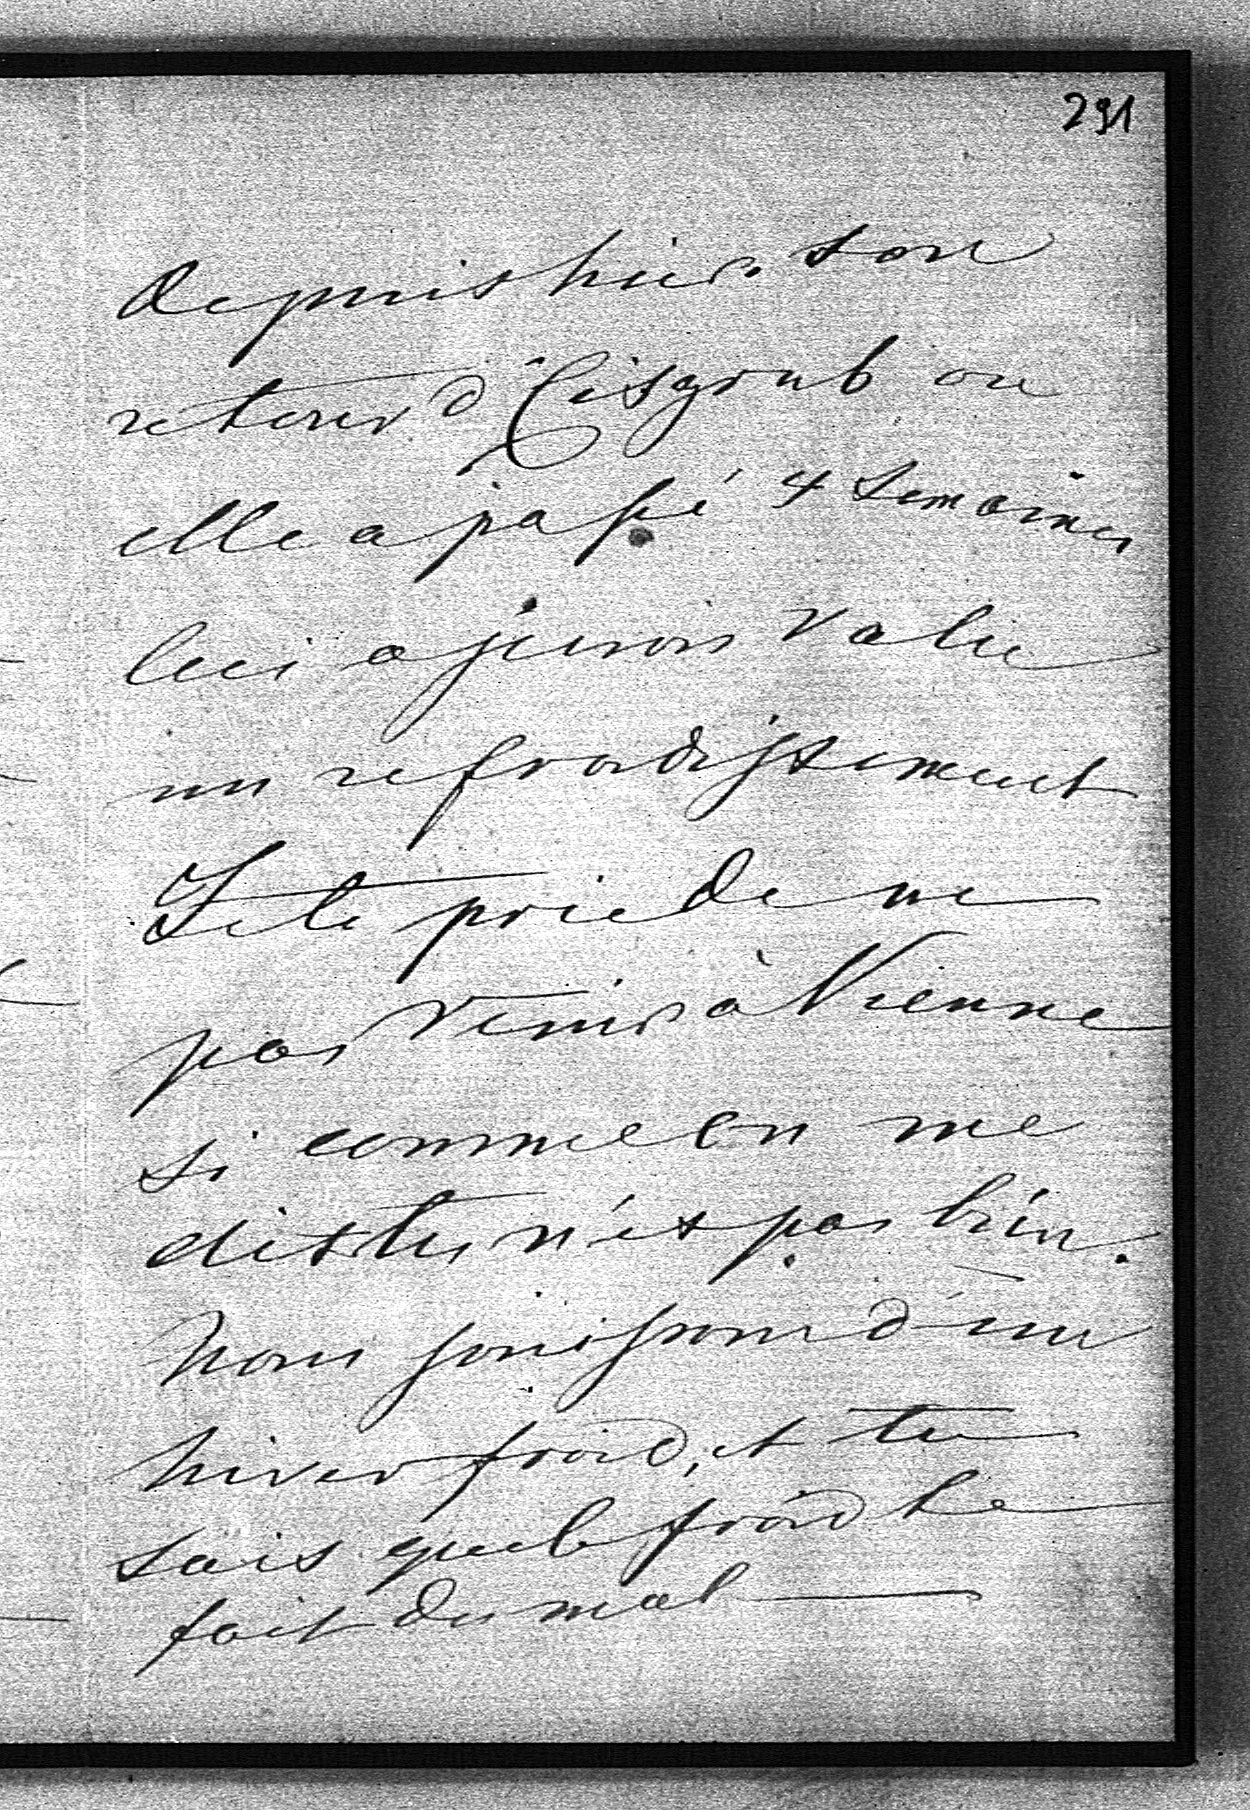 291
depuis hier son
retour d'Eisgrub ou
elle a passé 4 Semaines
Ceci a jeunois valu
un refroidissement
Je te prie de ne
pas venir à Vienne
si comme on me
dis tu n'és pas bien.
Nous jouissons d'un
hiver froid, et tu
sais que le froid te
fait du mal